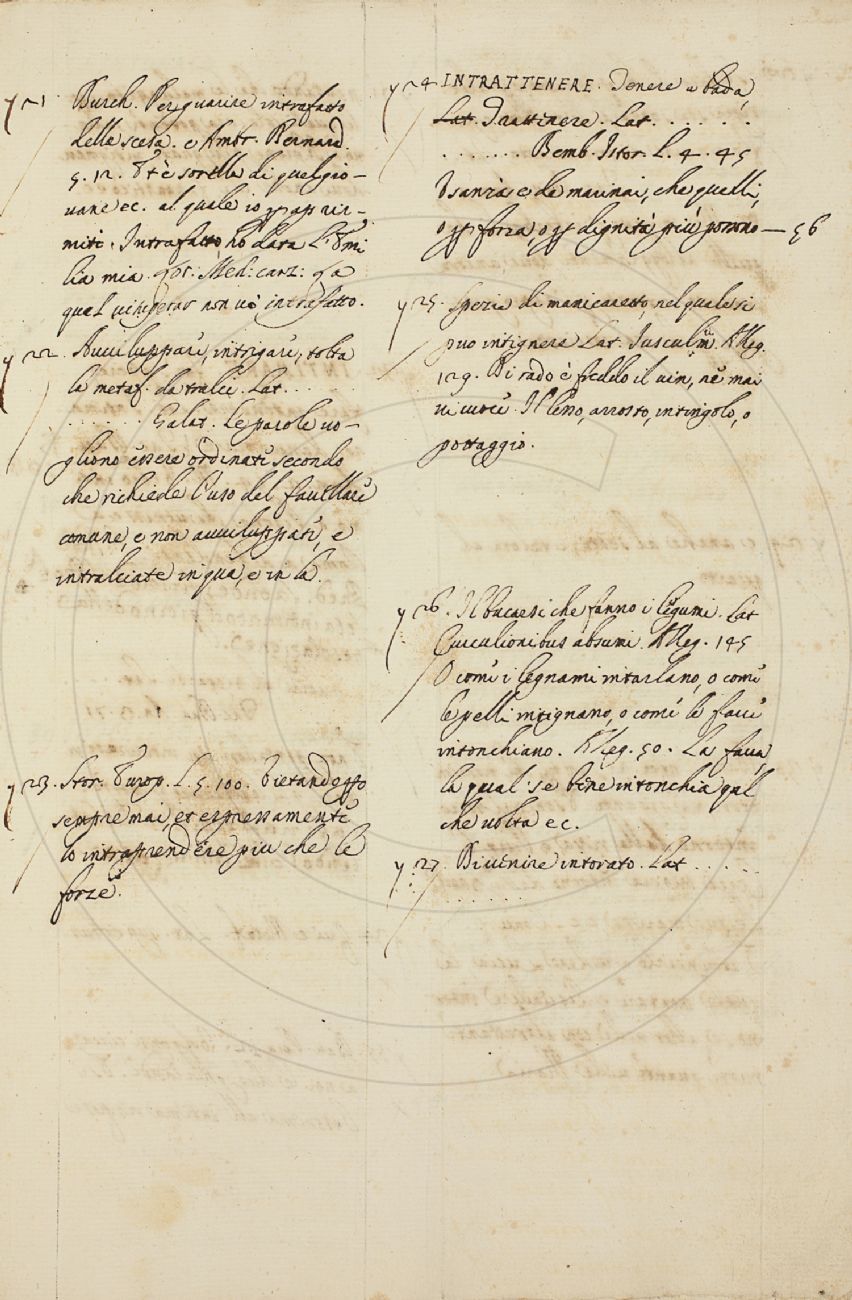 y 21 Burch. Per guarire intrafatto
della scesa. e Ambr. Bernard.
5. 12. Et è sorella di quel gio-
vane ec. al quale io
mite. Intrafatto, ho data l'Emi
lia mia. Med: canz:
qual non vo' intrafatto.
y 22. Avviluppare, intrigare, tolta
la metaf. da tralci. Lat. . . . . .
. . . . . . Galat. Le parole vo-
gliono essere ordinate secondo
che richiede l'uso del favellare
comune, e non avviluppate, e
intralciate in qua, e in là.
y 23. Stor. Europ. L. 5. 100. Vietandogli
sempre mai, et espressamente
lo intraprendere più che le
forze.
y 24 INTRATTENERE. Tenere a bada,
Lat. Trattinere. Lat. . . . . . .
. . . . . . . Bemb. Istor. L. 4. 45
Usanza è de marinai, che quelli,
o p forza, o p dignità più possono — 56
y 25. Spezie di manicaretto, nel quale si
può intignere Lat. Jusculũ. Alleg.
129. Di rado è freddo il vin, nè mai
vi cuoce Il leno, arrosto, intingolo, o
pottaggio.
y 26. Il bucarsi che fanno i legumi. Lat
Curculionibus absumi. Alleg. 145
O come i legnami intarlano, o come
le pelli intignano, o come le fave
intonchiano. Alleg. 50. La fava,
la qual se bene intonchia qual
che volta ec.
y 27. Divenire intorato. Lat . . . . .
. . . . . . .